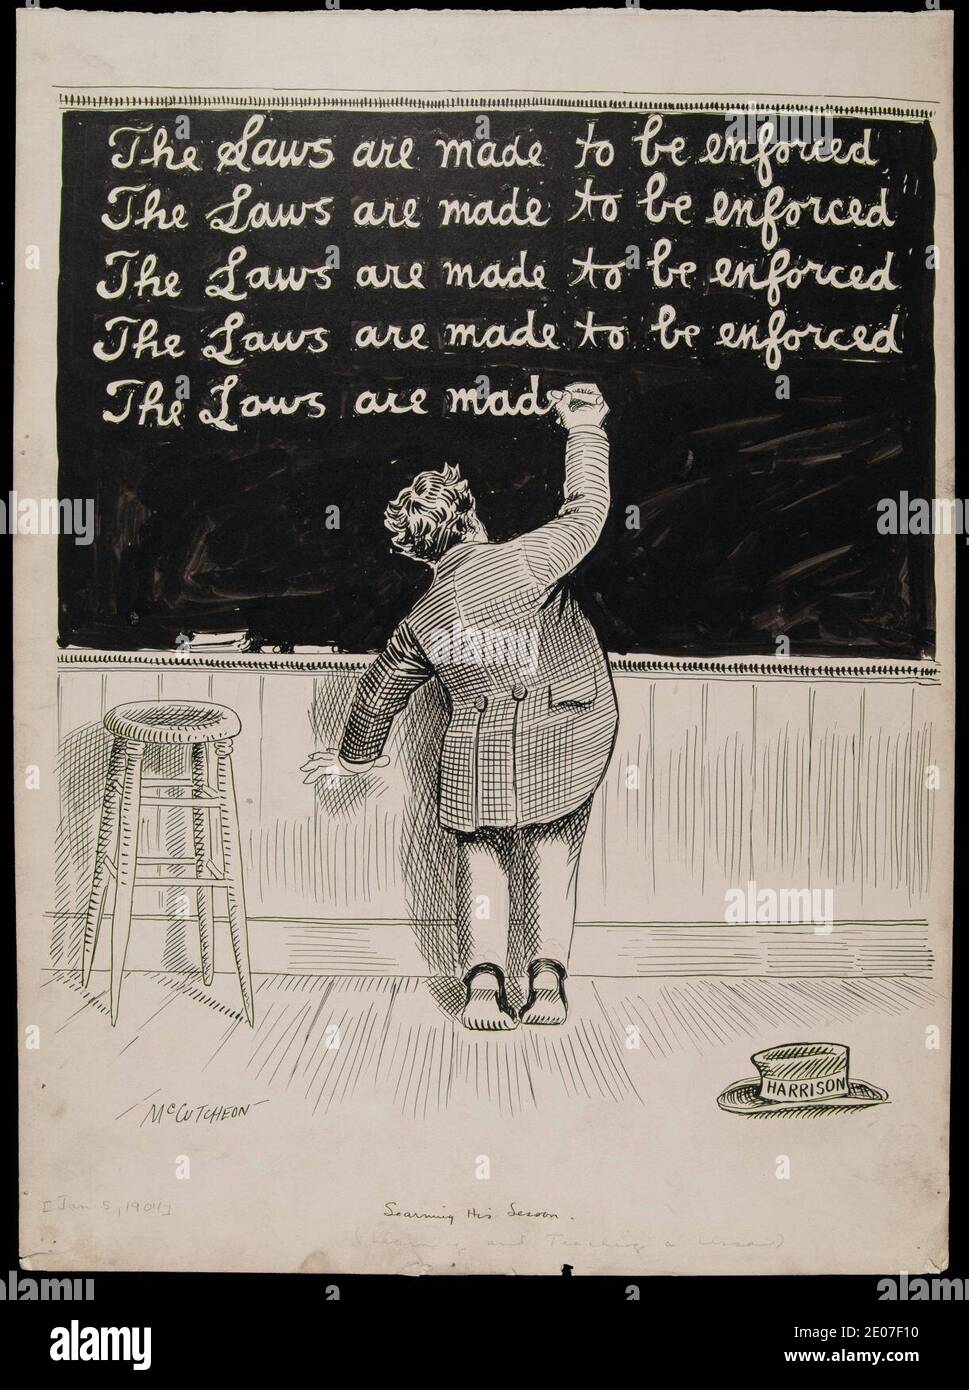 The Laws are made to be enforced
The Laws are made to be enforced
The Laws are made to be enforced
The Laws are made to be enforced
The Laws are mad
HARRISON
McCUTCHEON
[Jan 5, 1904]
Learning His Lesson.
(Learning and Teaching a Lesson)
a
alamy
alamy
Image ID: 2E07F10
www.alamy.com